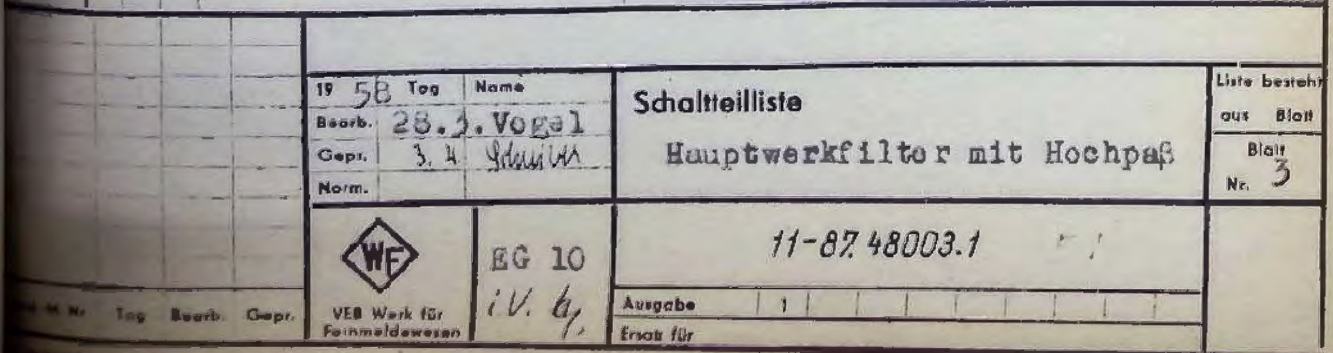 19 58 Tag Name
Bearb. 28.3. Vogel
Gepr. 3. 4.
Norm.
Schaltteilliste
Hauptwerkfilter mit Hochpaß
Liste besteht
aus Blatt
Blatt
Nr. 3
WF
VEB Werk für
Fernmeldewesen
EG 10
i.V.
11-87.48003.1
Ausgabe 1
Ersatz für
M Nr Tag Bearb. Gepr.